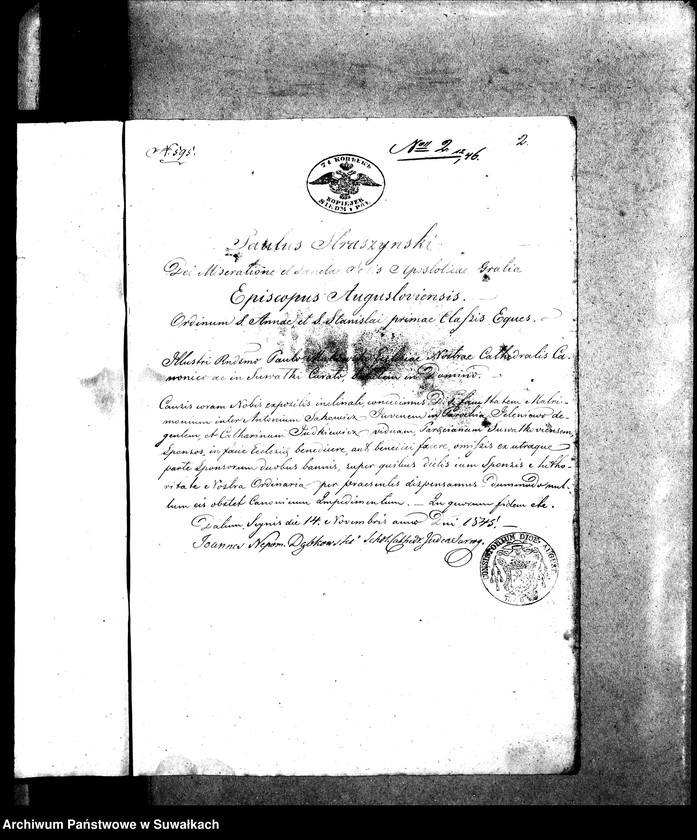 N. 595.
Noll 2 12/46.
2.
74 КОПѢЕКЪ
KOPIEJEK
SIEDM i PÓŁ
Paulus Straszynski
Dei Miseratione et Sanctae Sedis Apostolicae Gratia
Episcopus Augustoviensis.
Ordinum S. Annae et S. Stanislai primae Classis Eques.
Illustri Rndsmo Paulo Ecclesiae Nostrae Cathedralis Ca-
nonico ac in Suwałki Curato, Salutem in Domino.
Causis coram Nobis expositis inclinati, concedimus D. T. facultatem Matri-
monium inter Antonium Sakowicz Juvenem in Parochia Jeleniewo de-
gentem, et Catharinam Judkiewicz viduam, Parochianam Suwałkoviensem,
Sponsos, in facie Ecclesiae benedicere, aut benedici facere, omissis ex utraque
parte Sponsorum duobus bannis, super quibus dictis cum Sponsis Autho-
ritate Nostra Ordinaria per praesentes dispensamus. Dummodo nul-
lum eis obstet Canonicum Impedimentum. — In quorum fidem etc.
Datum Seynis die 14. Novembris anno Dni 1845. —
Joannes Nepom. Dąbkowski Schol. Cathedr. Judex Surrog.
CONSISTORIUM DIOEC. AUGUST.
Archiwum Państwowe w Suwałkach